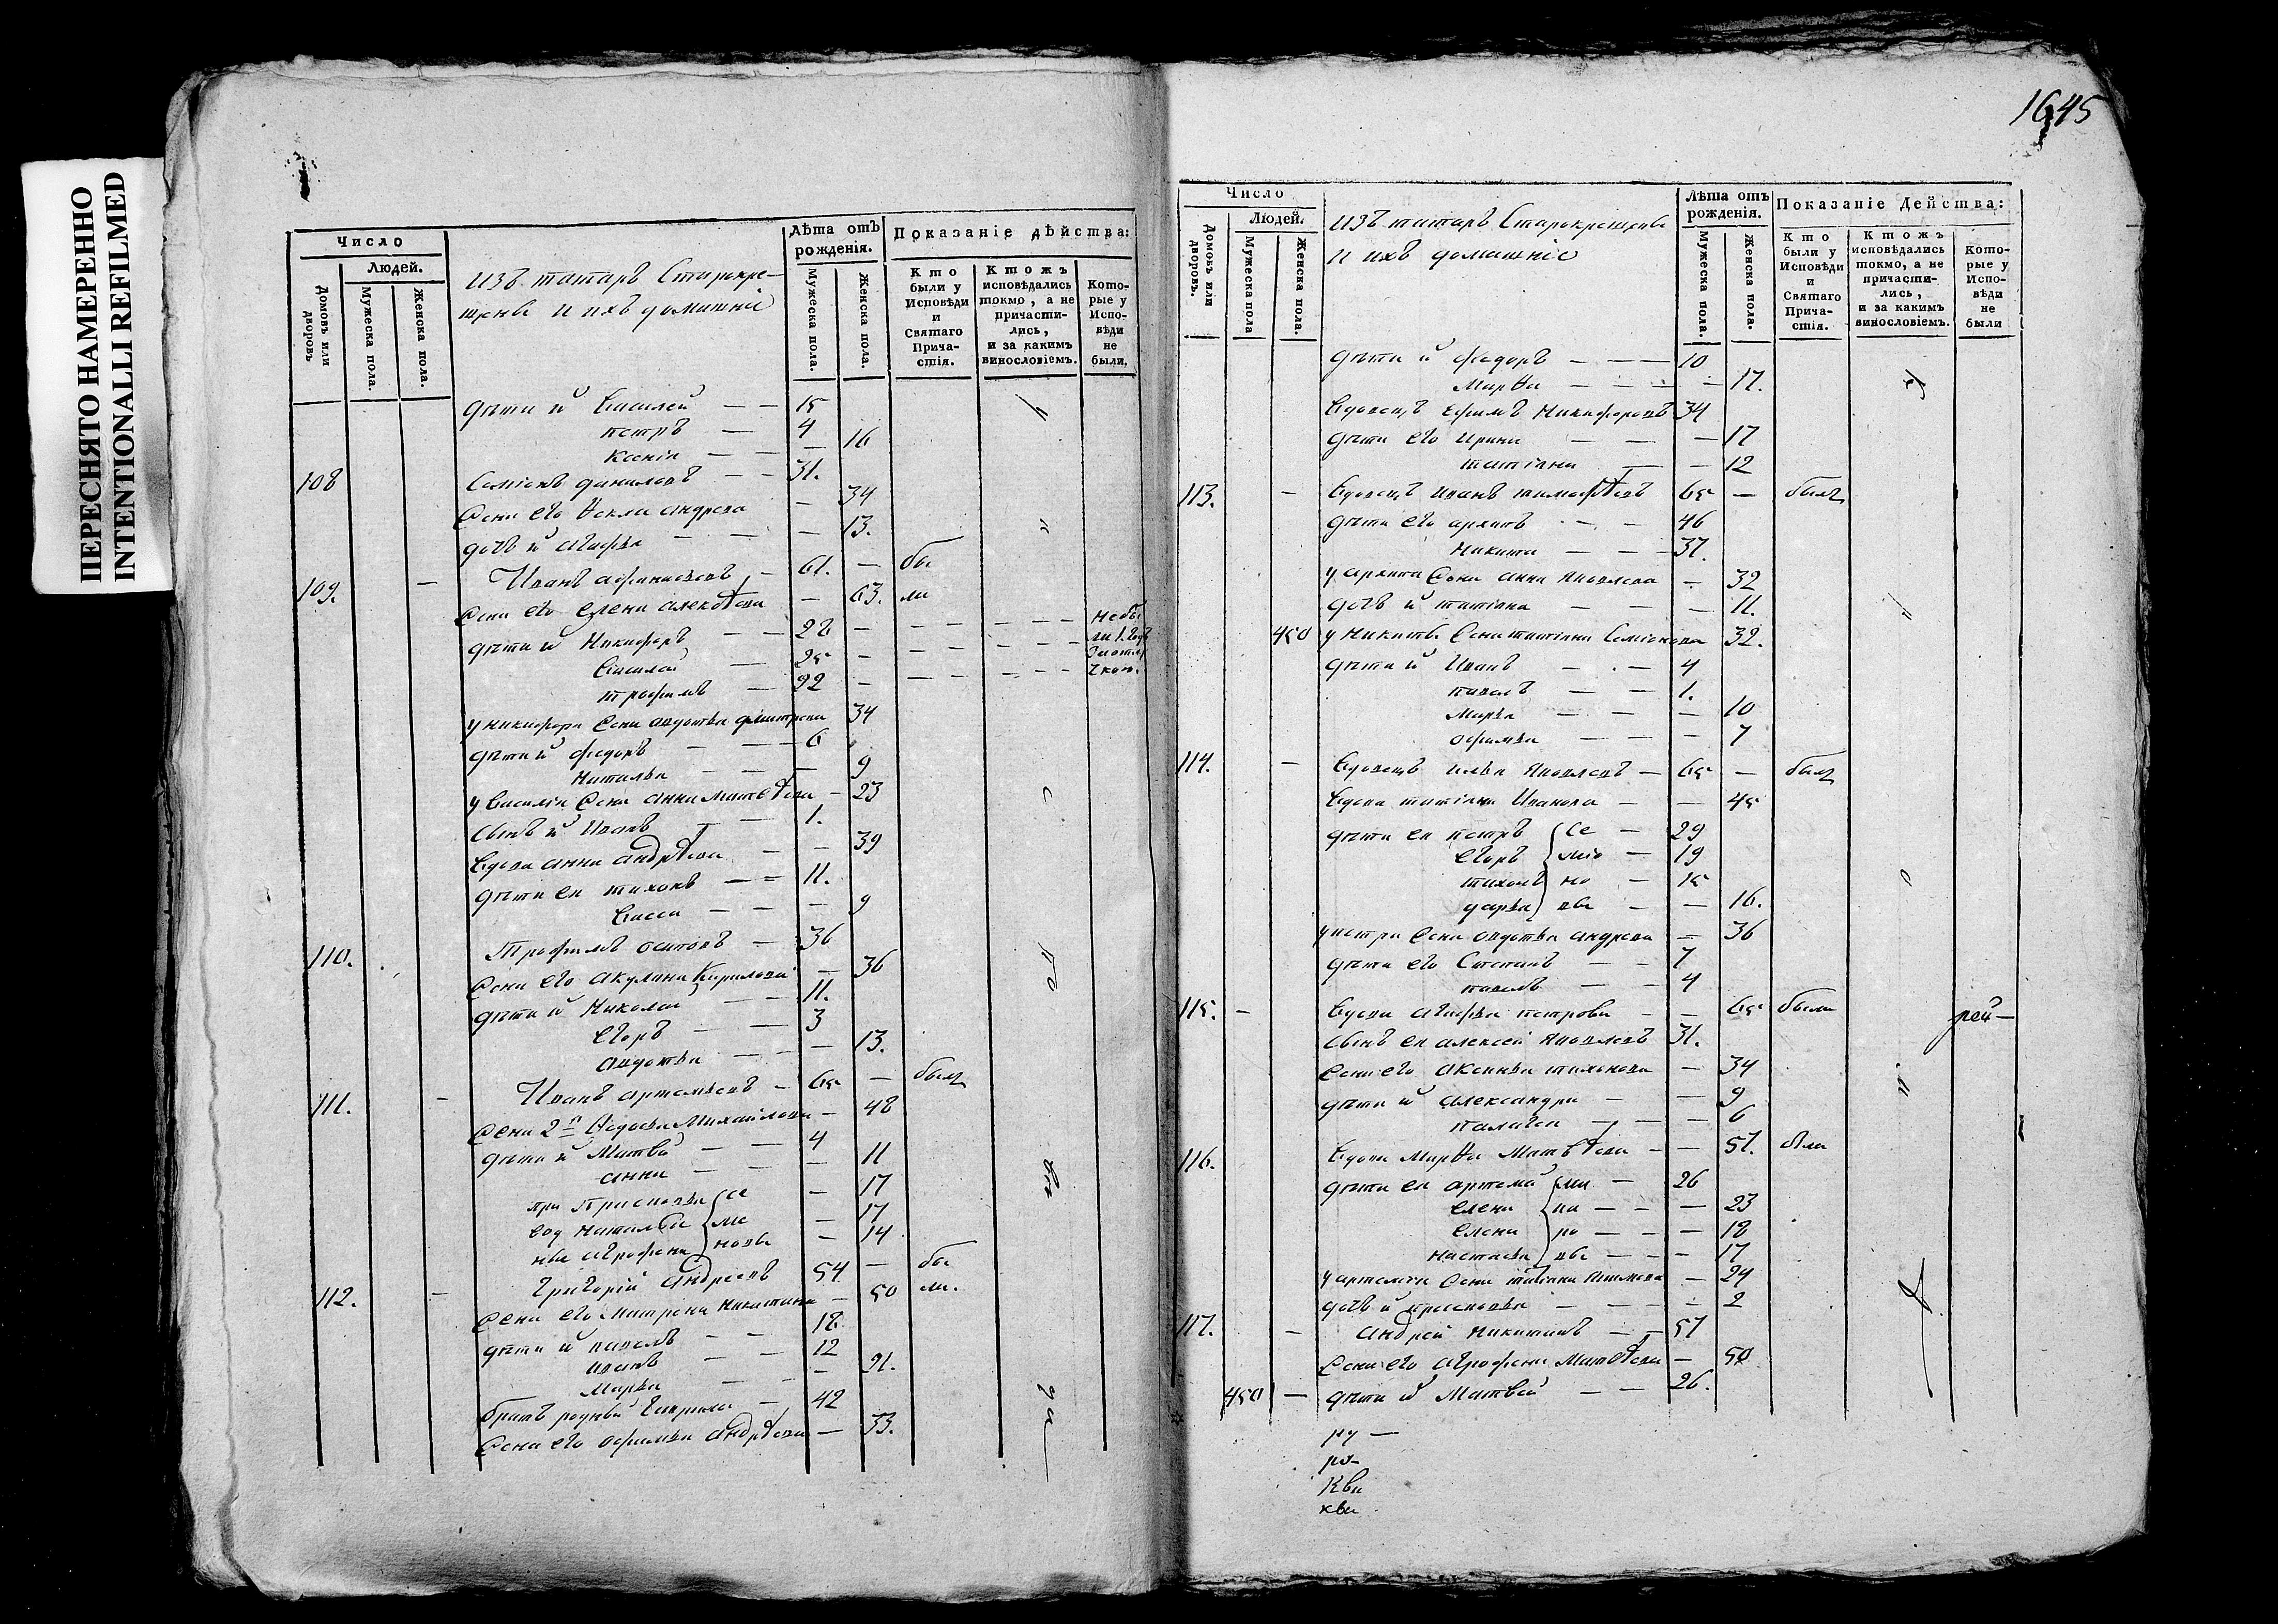 ПЕРЕСНЯТО НАМЕРЕННО
INTENTIONALLI REFILMED
Число
Людей.
Домовъ или дворовъ
Мужеска пола.
Женска пола.
изъ татаръ Старокре-
щены и ихъ домашніе
Лѣта отъ рожденія.
Мужеска пола.
Женска пола.
Показаніе дѣйства:
Кто были у Исповѣди и Святаго Прича-стія.
Ктожъ исповѣдались токмо, а не причасти-лись, и за какимъ винословіемъ.
Кото-рые у Испо-вѣди не были.
дѣти и Василей — — 15
петръ — 4
Ксенія — — — 16
108 Семіонъ даниловъ — — 31.
Жена его Ѳекла андреева — 34
дочь и агафья — — — 13.
109. — Иванъ афанасьевъ — 61. — бы
Жена его елена алексѣева — 63. ли
дѣти и Никифоръ — — 28 — — — — Небы
Василей — 25 — — — —
трофимъ — 22 — — — —
у никифора жена авдотья дмитрева 34
дѣти и федоръ — — 6
Наталья — — — 9
у Василія жена анна матвѣева — 23
сынъ и Иванъ — — 1.
Вдова анна андрѣева — — 39
дѣти ея тихонъ — — 11.
Васса — — — 9
110. Трофимъ осиповъ — 36
Жена его акулина Кирилова — 36
дѣти и Николай — — 11.
Егоръ — — 3
авдотья — — — 13.
111. — Иванъ артемьевъ — 65 — былъ
жена 2я Ѳедосья Михайлова — 48
дѣти и Матвей — — 4
анна — — — 11
при Прасковья се — 17
вод Наталья ме — 17
ные аграфена новы — 14
112. — Григорій андреевъ 54 — бы
жена его матрена никитина — 50 ли.
дѣти и павелъ — — 18.
иванъ — — 12
Марья — — — 21.
братъ родный Гаврила — 42
жена его офимья андрѣева — 33.
1645
Число
Людей.
Домовъ или дворовъ.
Мужеска пола
Женска пола.
изъ татаръ Старокрещены
и ихъ домашніе
Лѣта отъ рожденія.
Мужеска пола.
Женска пола.
Показаніе Действа:
Кто были у Исповѣди и Святаго Прича-стія.
Ктожъ исповѣдались токмо, а не причасти-лись, и за какимъ винословіемъ.
Кото-рые у Испо-вѣди не были
дѣти и федоръ — — — 10
марѳа — — — — 17.
Вдовецъ Ефимъ Никифоровъ 34
дѣти его ирина — — — 17
татіана — — 12
113. — Вдовецъ иванъ тимофѣевъ 65 — былъ
дѣти его архипъ — — 46
Никита — — — 37.
у архипа жена анна яковлева — 32
дочь и татіана — — — 11.
450 у никиты жена татіана Семіонова 32.
дѣти и Иванъ — — 4
павелъ — — 1.
марья — — — 10
офимья — — — 7
114. — Вдовецъ илья яковлевъ — 65 — былъ
Вдова татіана Иванова — — 45
дѣти ея петръ се — 29
егоръ міо — 19
тихонъ но — 15
дарья вы — — 16.
у петра жена авдотья андреева — 36
дѣти его Степанъ — — 7
павелъ — — 4
115. — Вдова агафья петрова — — 65 была рей—
сынъ ея алексей яковлевъ 31.
жена его аксинья тихонова — 34
дѣти и александра — — 9
палагея — — — 6
116. Вдова Марѳа Матвѣева — — 51. была
дѣти ея артемій ми — 26
елена на — — — 23
елена ро — — — 18
настасья вы — — — 17
у артемія жена татіана — 24
дочь и прасковья — — — — 2
117. — андрей никитинъ — — 57
жена его аграфена матвѣева — 50
450 — дѣти и Матвей — — 26.
ру —
ро-
Кви
кви